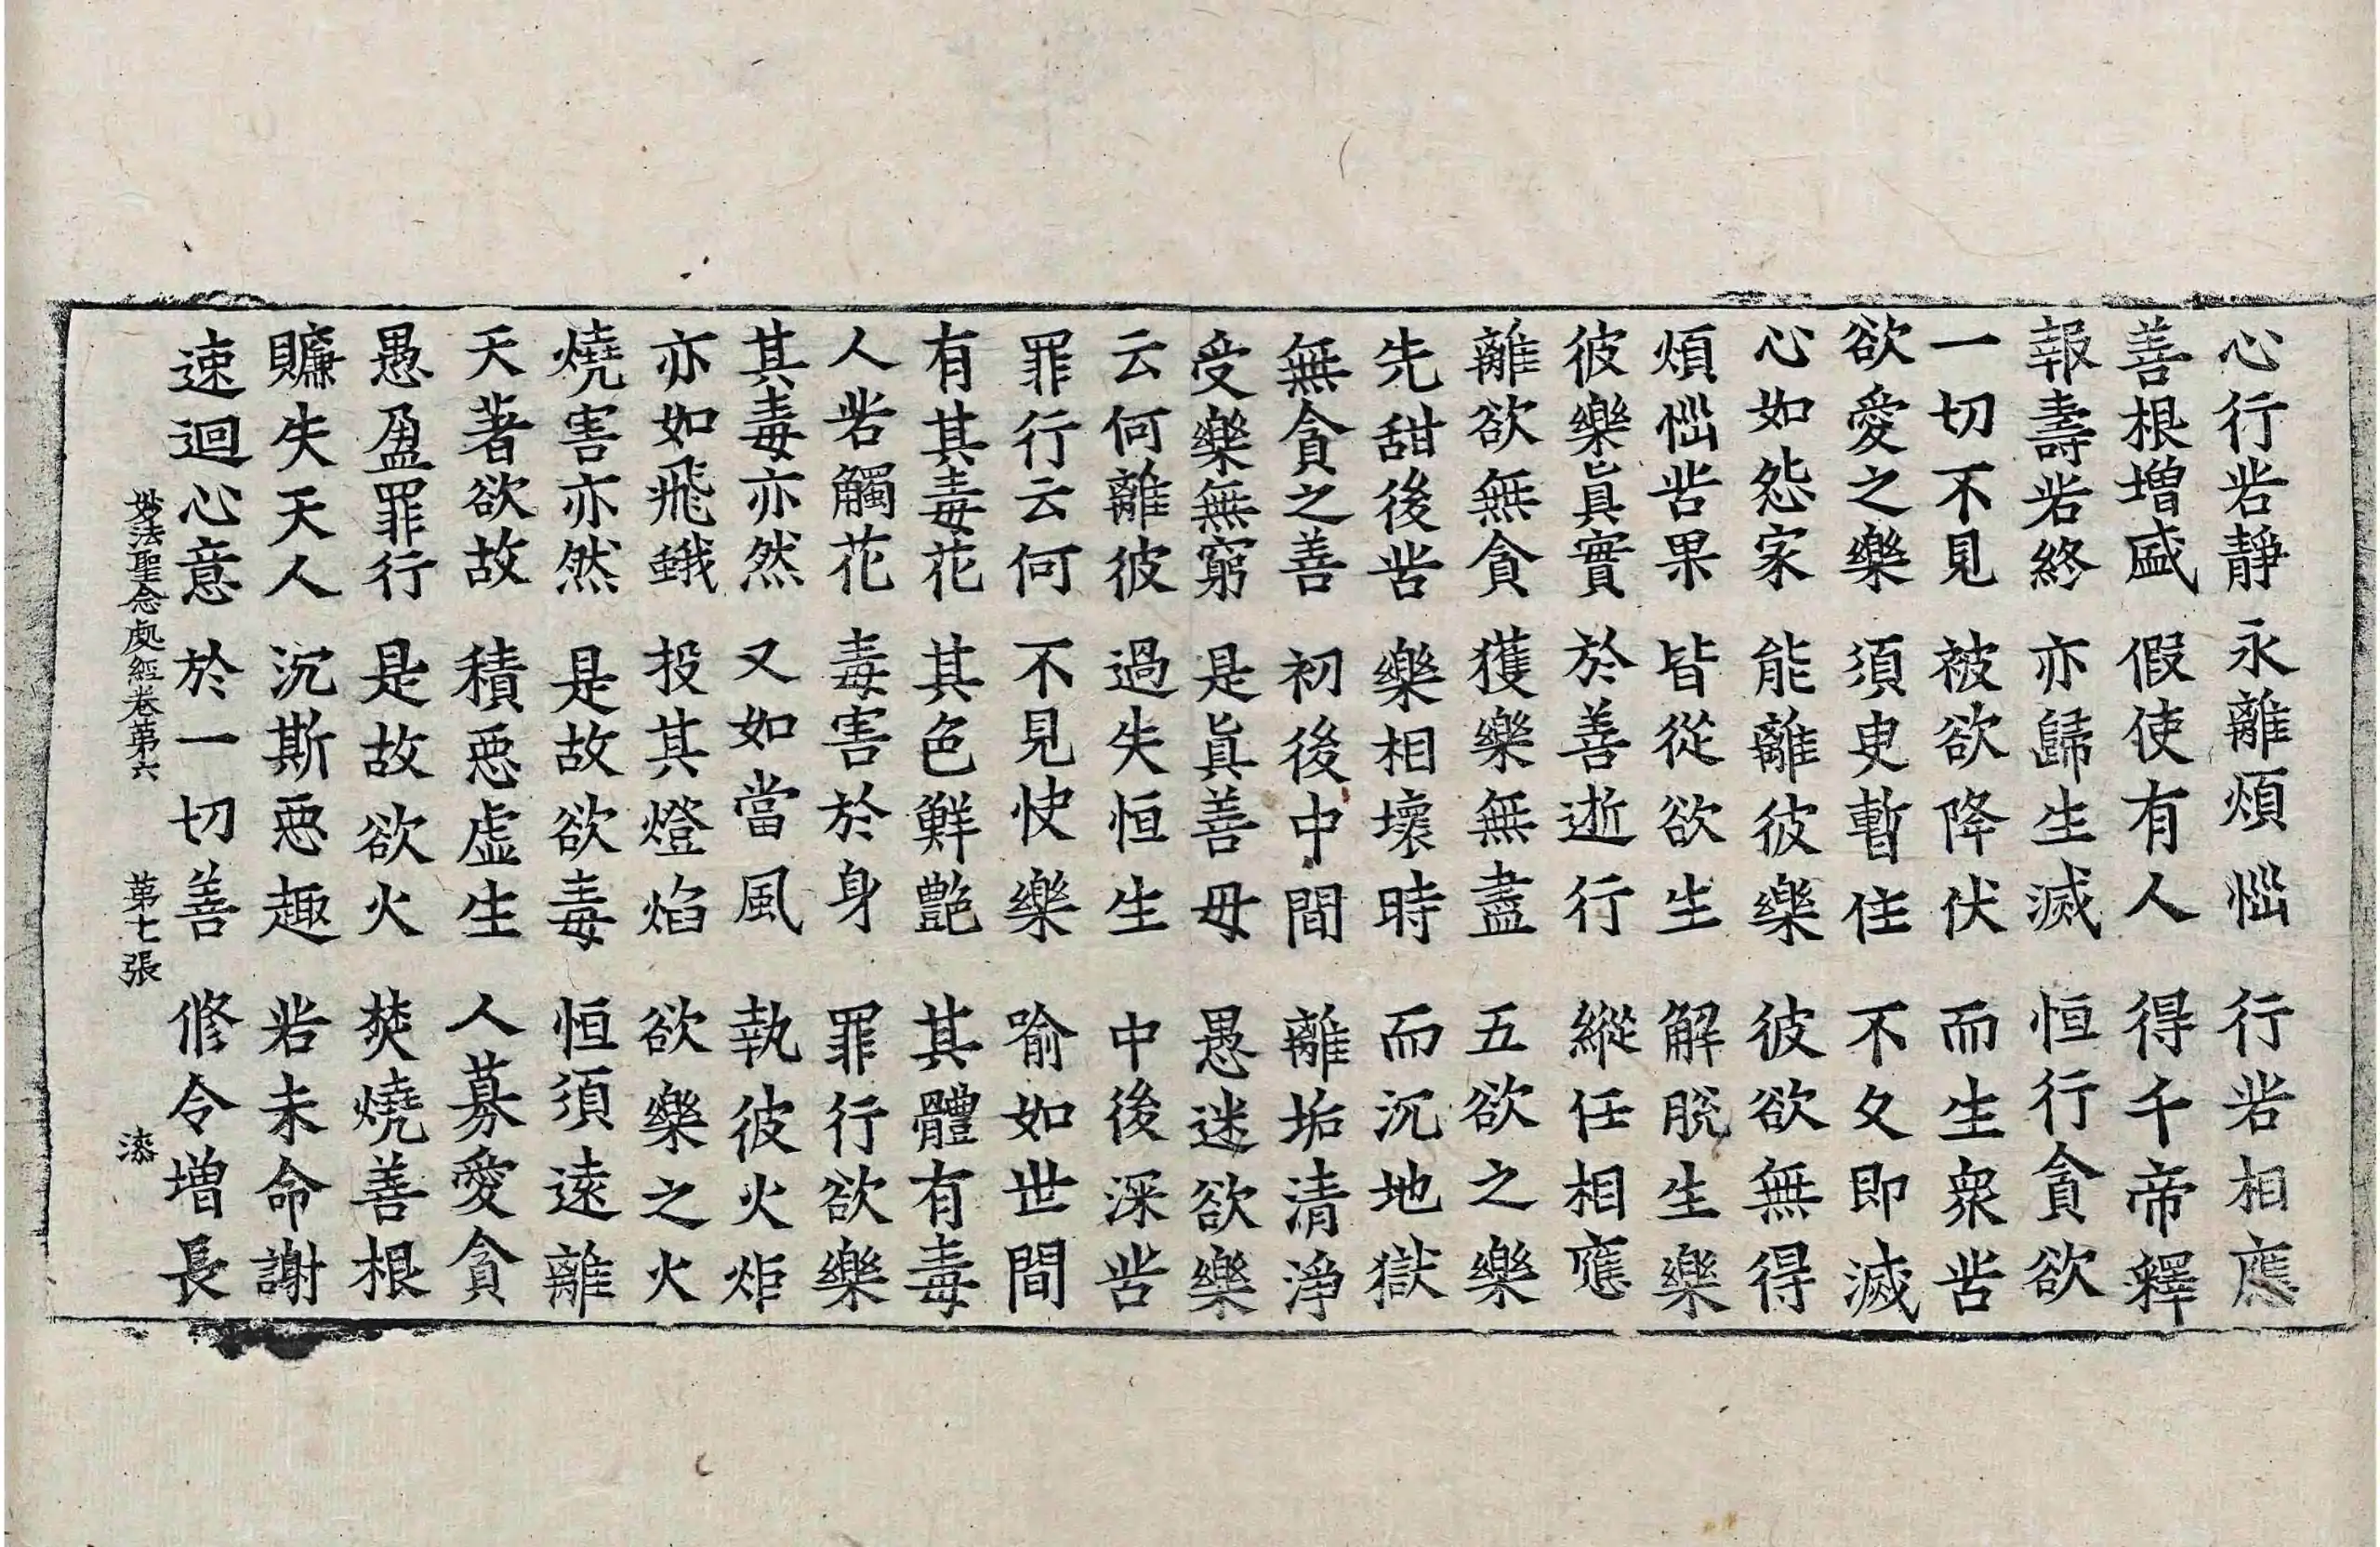 心行若靜　永離煩惱　行若相應
善根增盛　假使有人　得千帝釋
報壽若終　亦歸生滅　恒行貪欲
一切不見　被欲降伏　而生衆苦
欲愛之樂　須臾暫住　不久即滅
心如怨家　能離彼樂　彼欲無得
煩惱苦果　皆從欲生　解脫生樂
彼樂眞實　於善逝行　縱任相應
離欲無貪　獲樂無盡　五欲之樂
先甜後苦　樂相壞時　而沉地獄
無貪之善　初後中間　離垢清淨
受樂無窮　是眞善母　愚迷欲樂
云何離彼　過失恒生　中後深苦
罪行云何　不見快樂　喻如世間
有其毒花　其色鮮艶　其體有毒
人若觸花　毒害於身　罪行欲樂
其毒亦然　又如當風　執彼火炬
亦如飛蛾　投其燈焰　欲樂之火
燒害亦然　是故欲毒　恒須遠離
天著欲故　積惡虛生　人募愛貪
愚盈罪行　是故欲火　焚燒善根
賺失天人　沉斯惡趣　若未命謝
速迴心意　於一切善　修令增長
妙法聖念處經卷第六　第七張　漆